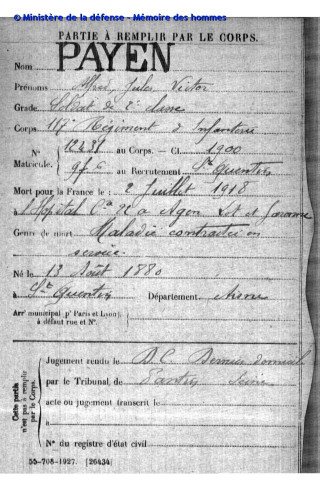 © Ministère de la défense - Mémoire des hommes
PARTIE À REMPLIR PAR LE CORPS.
Nom PAYEN
Prénoms Alfred Jules Victor
Grade Soldat de 2e classe
Corps 117e Régiment d'Infanterie
N° 12431 au Corps. — Cl. 1900
Matricule. 976 au Recrutement St Quentin
Mort pour la France le : 2 Juillet 1918
à l'hôpital Cre 21 à Agen Lot et Garonne
Genre de mort Maladie contractée en
service.
Né le 13 Août 1880
à St Quentin Département Aisne
Arrt municipal (pr Paris et Lyon),
à défaut rue et N°.
Cette partie
n'est pas à remplir
par le Corps.
Jugement rendu le D.C. Dernier domicile
par le Tribunal de Pantin Seine
acte ou jugement transcrit le
à
N° du registre d'état civil
55-708-1927. [26434]